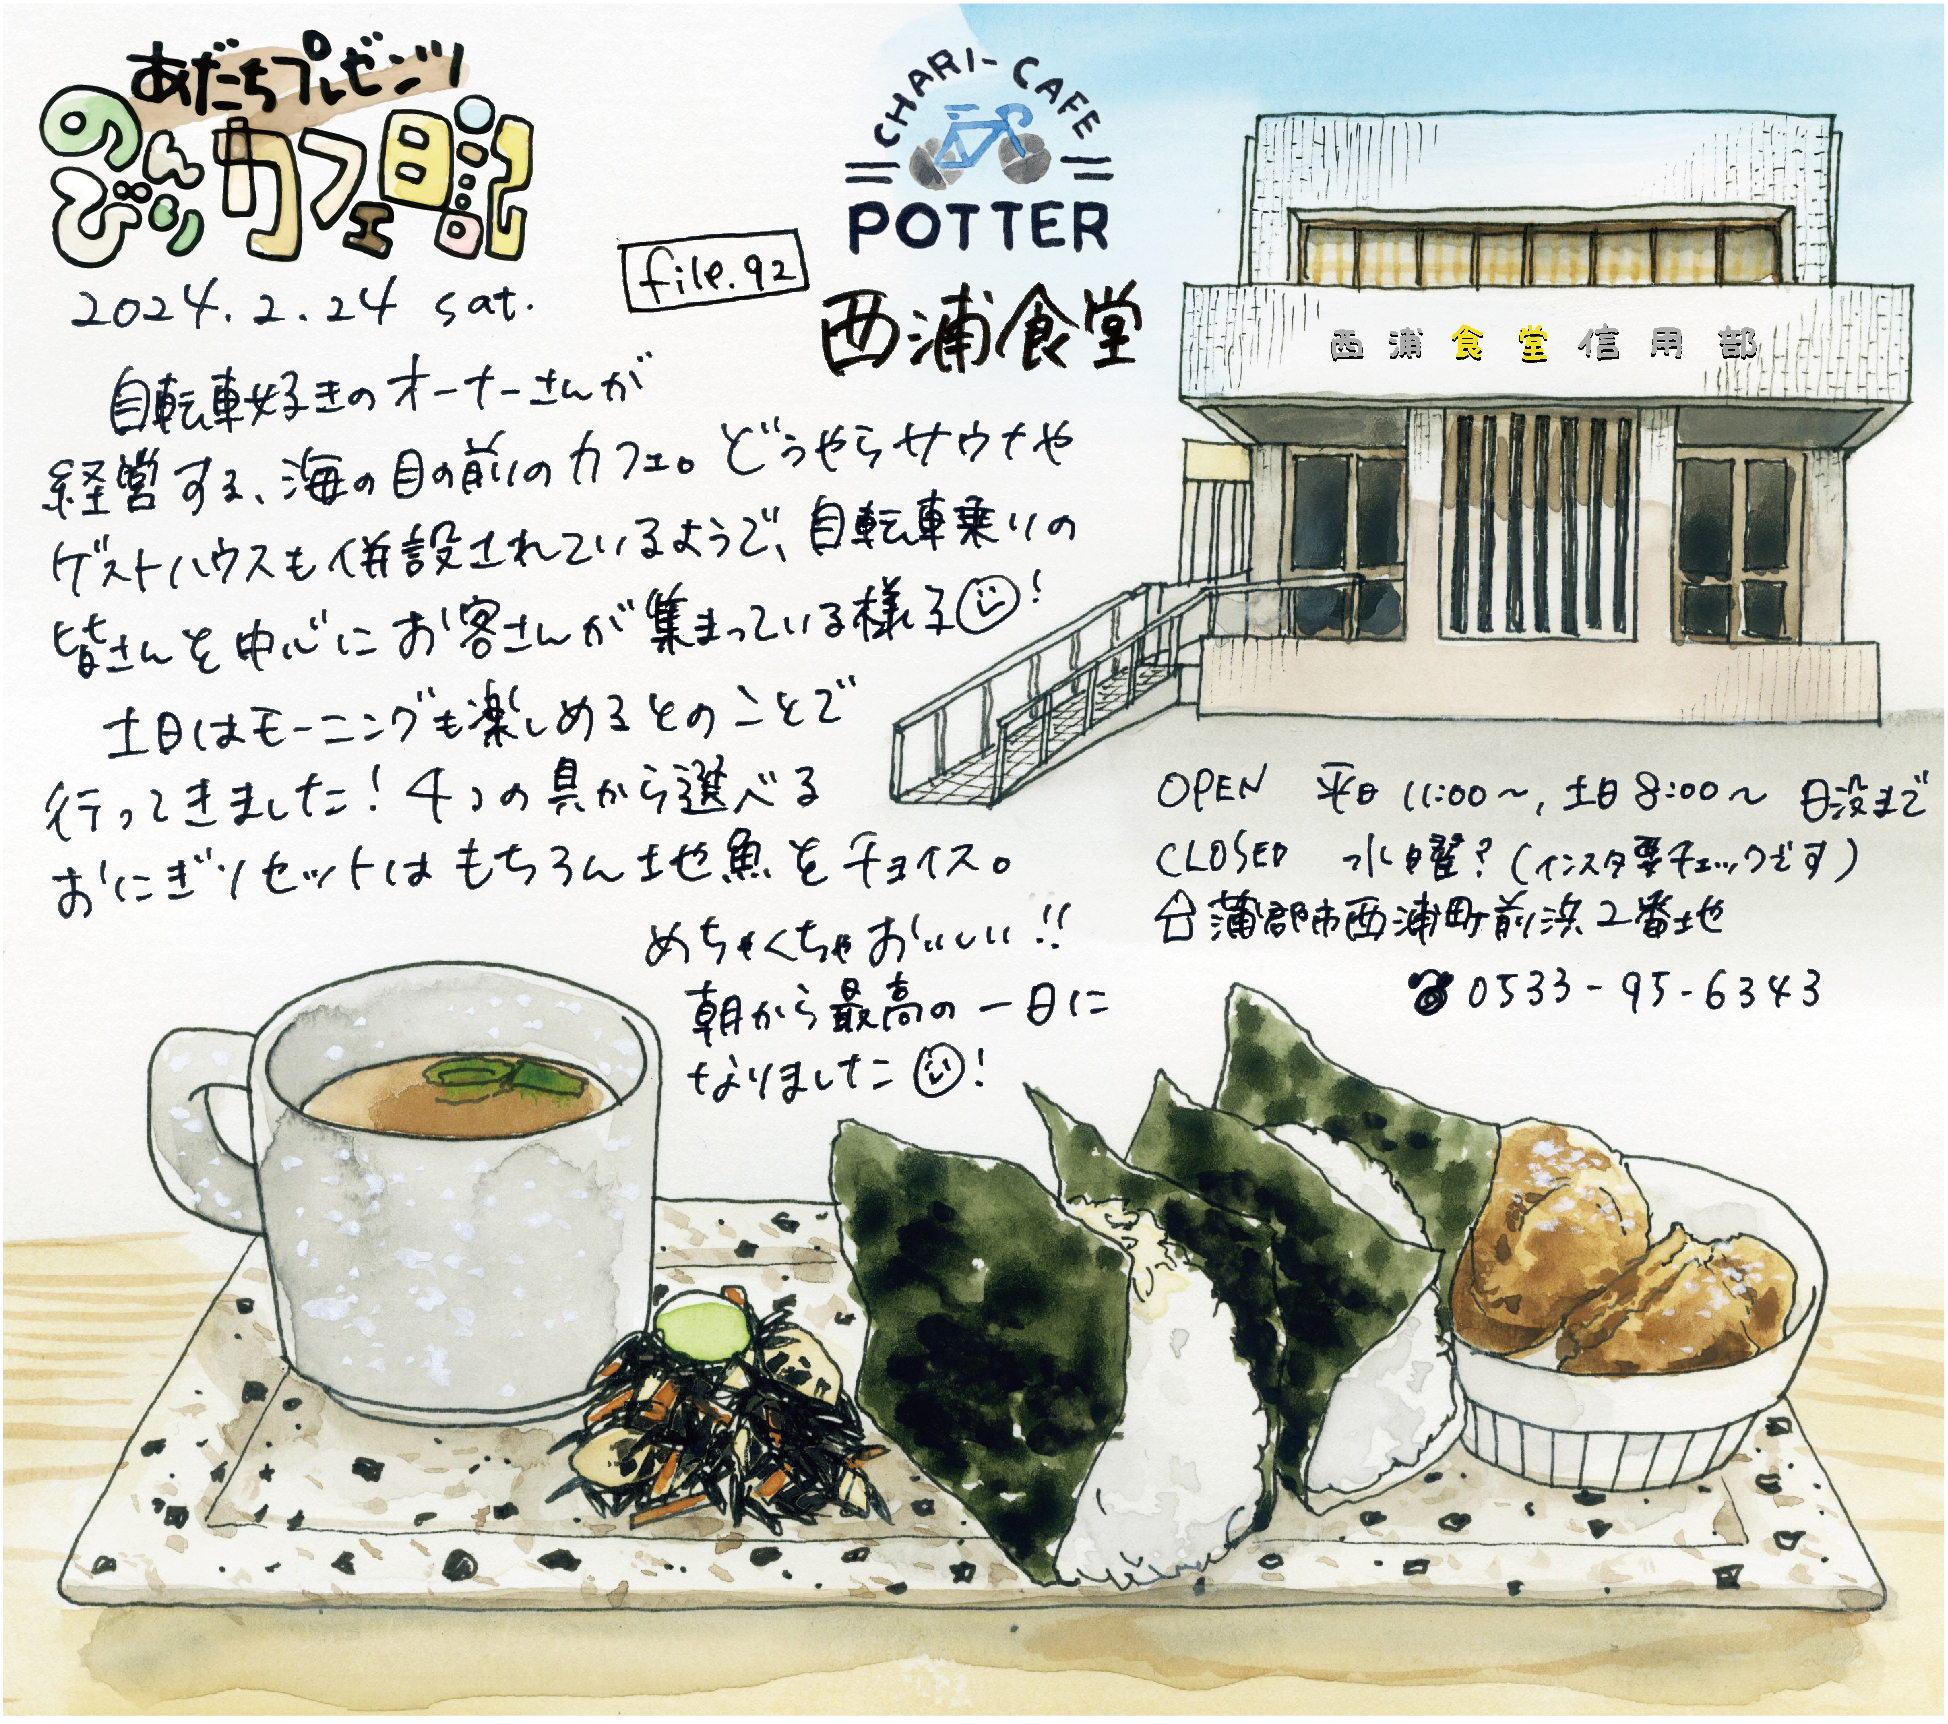 あだちプレゼンツ
のんびり カフェ日記
2024.2.24 sat.
file.92
CHARI-CAFE
POTTER
西浦食堂
西浦食堂信用部
自転車好きのオーナーさんが
経営する、海の目の前のカフェ。どうやらサウナや
ゲストハウスも併設されているようで、自転車乗りの
皆さんを中心にお客さんが集まっている様子!
土日はモーニングも楽しめるとのことで
行ってきました!4つの具から選べる
おにぎりセットはもちろん地魚をチョイス。
めちゃくちゃおいしい!!
朝から最高の一日に
なりました!
OPEN 平日 11:00~, 土日 8:00~ 日没まで
CLOSED 水曜?(インスタ要チェックです)
蒲郡市西浦町前浜2番地
☎0533-95-6343